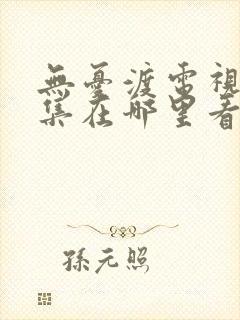 無憂渡電視
集在哪里看
孫元照